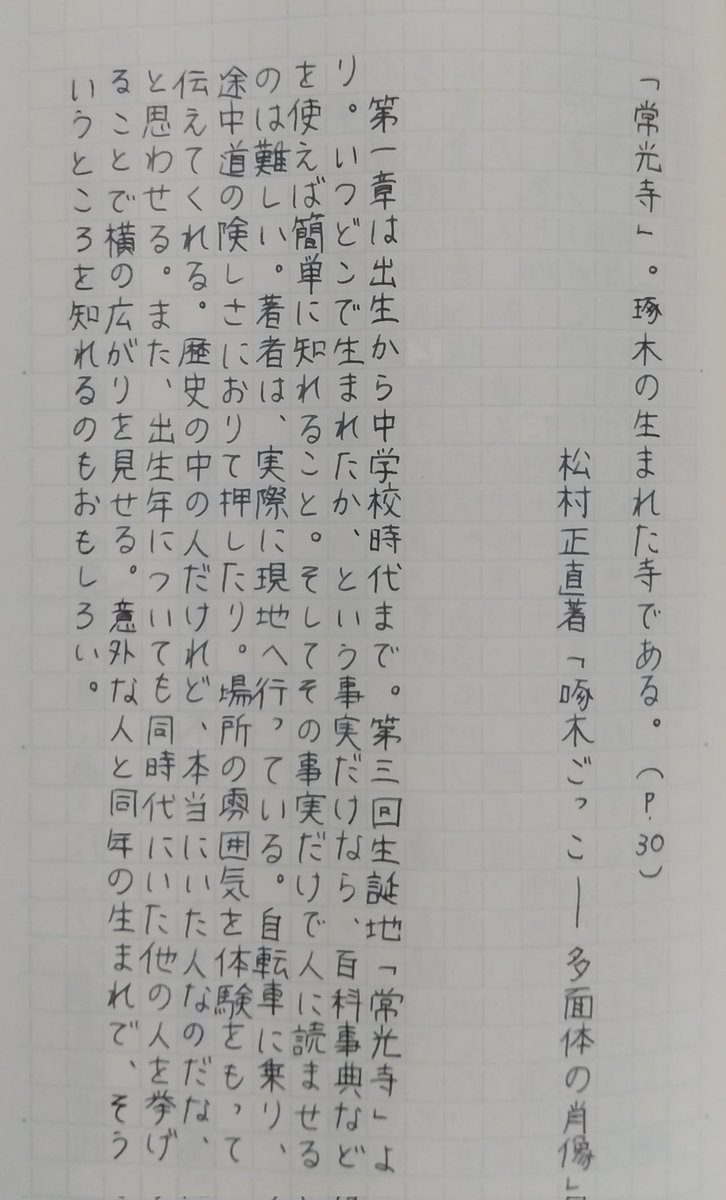 「常光寺」。琢木の生まれた寺である。（P.30）
松村正直著「啄木ごっこ―多面体の肖像」
第一章は出生から中学校時代まで。第三回生誕地「常光寺」よ
り。いつどこで生まれたか、という事実だけなら、百科事典など
を使えば簡単に知れること。そしてその事実だけで人に読ませる
のは難しい。著者は、実際に現地へ行っている。自転車に乗り、
途中道の険しさにおりて押したり。場所の雰囲気を体験をもって
伝えてくれる。歴史の中の人だけれど、本当にいた人なのだな、
と思わせる。また、出生年についても同時代にいた他の人を挙げ
ることで横の広がりを見せる。意外な人と同年の生まれで、そう
いうところを知れるのもおもしろい。